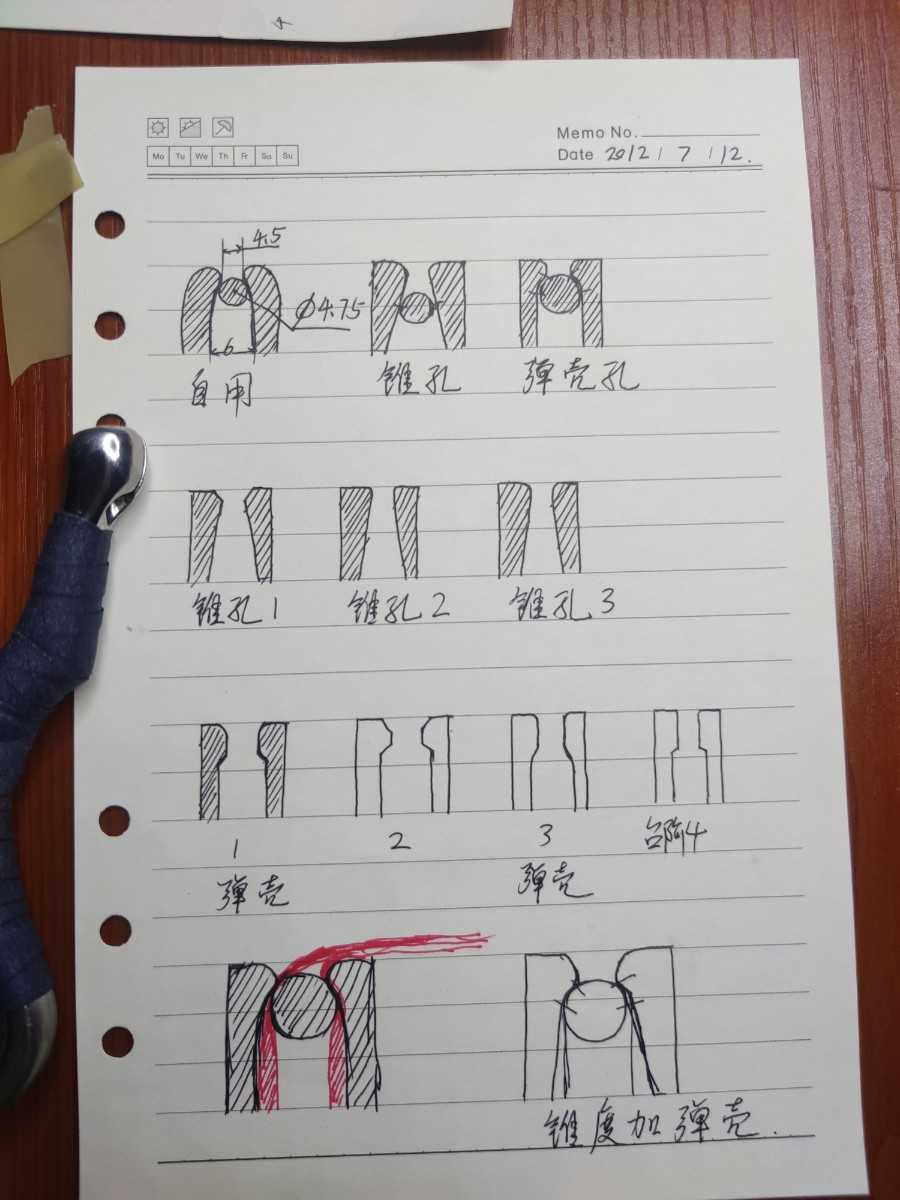 Memo No.
Mo Tu We Th Fr Sa Su
Date 2012 / 7 / 12.
4.5
Ø4.75
6
自用
锥孔
弹壳孔
锥孔1
锥孔2
锥孔3
1
2
3
台阶4
弹壳
弹壳
锥度加弹壳.